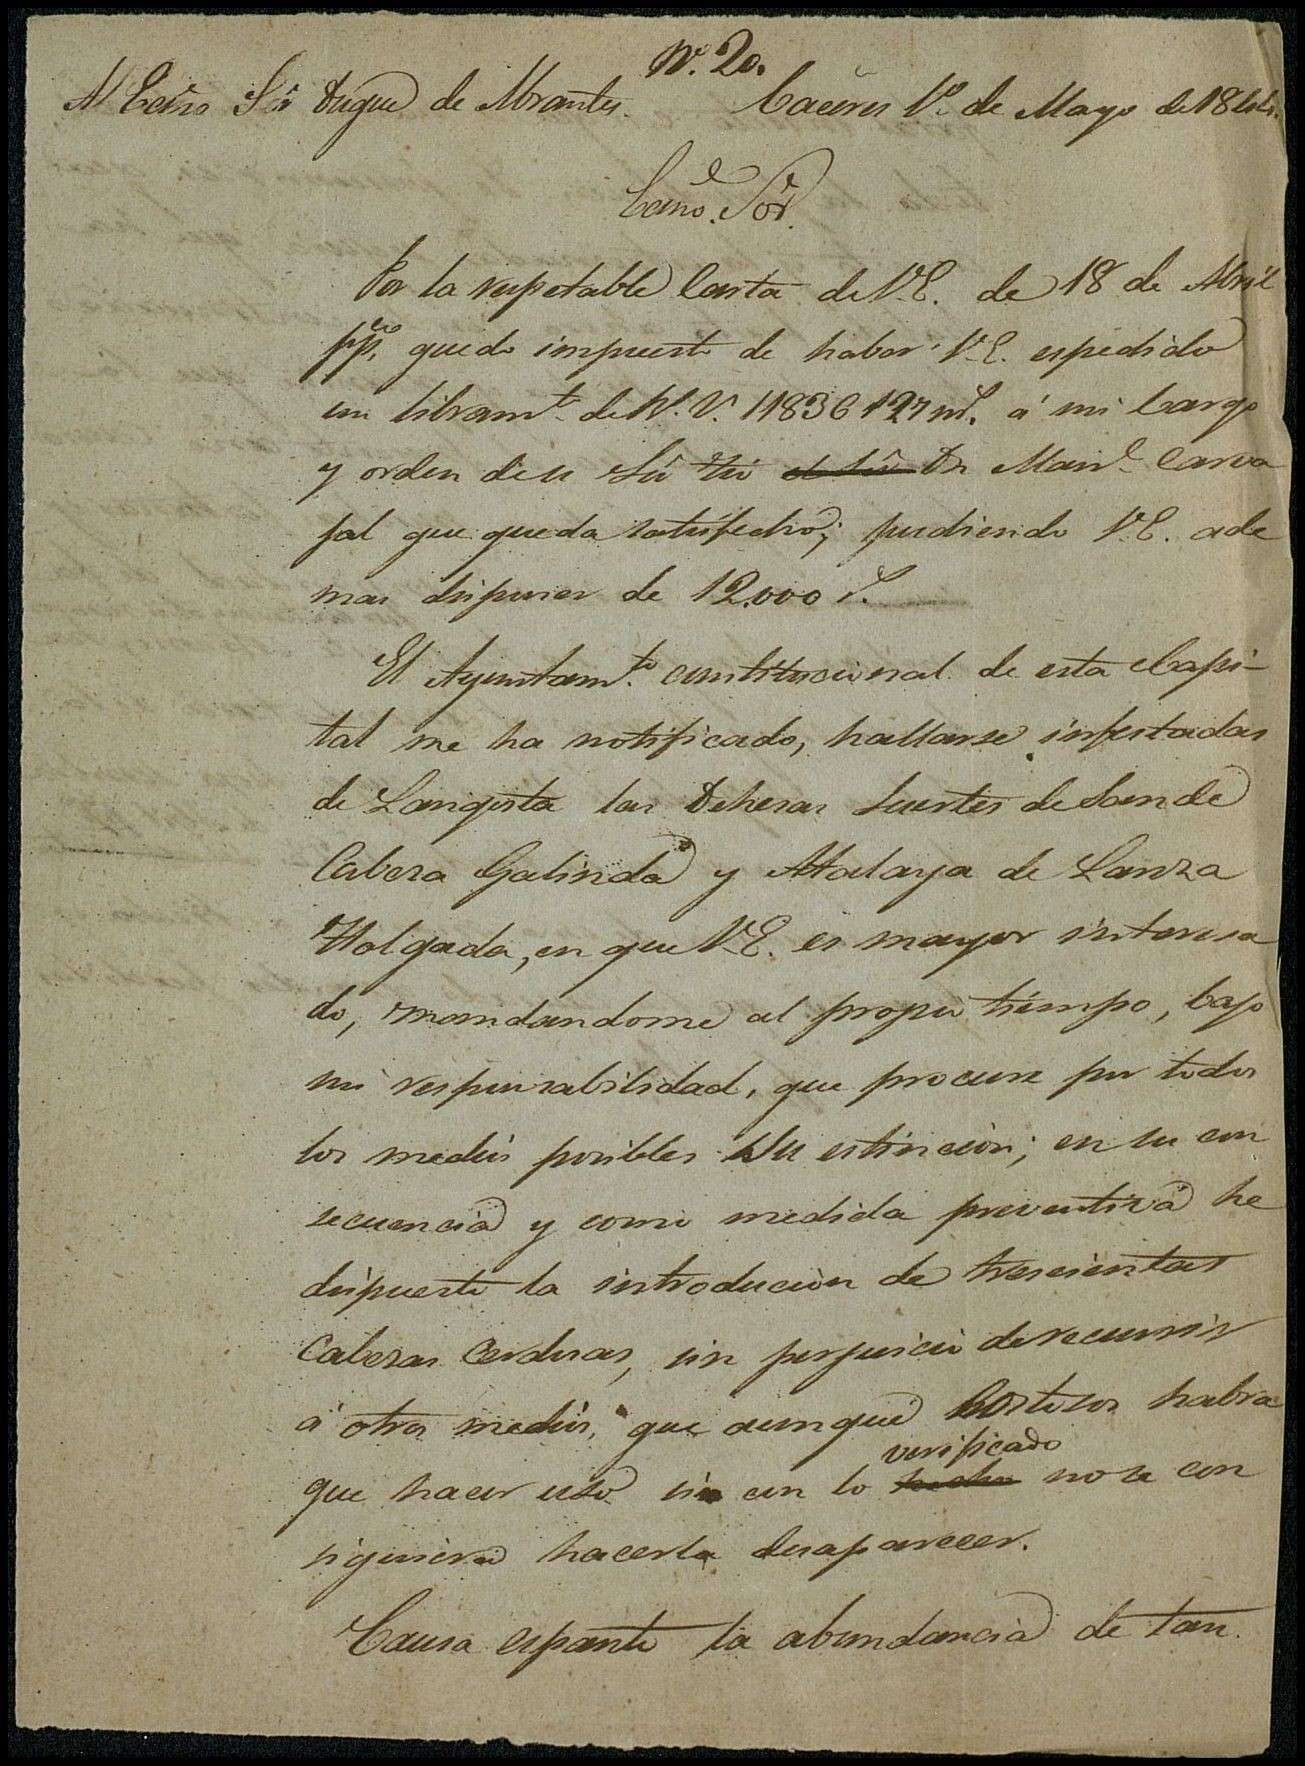 Nº. 20.
Al Exmo Sôr Duque de Abrantes. Caceres 1º de Mayo de 1844.
Exmo. Sôr.
Por la respetable Carta de V.E. de 18 de Abril
ppdo, quedo impuesto de haber V.E. espedido
un libramto. de R. V. 11836 127 ms. á mi Cargo
y orden de su Sôr Tio el Sôr Dn Manl. Carva
jal que queda satisfecho; pudiendo V.E. ade
mas disponer de 12.000 rs.
El Ayuntamto. constitucional de esta Capi-
tal me ha notificado, hallarse infestadas
de Langosta las Dehesas Suertes de Sande
Cabeza Galinda y Atalaya de Lanza
Holgada, en que V.E. es mayor interesa
do, mandandome al propio tiempo, bajo
mi responsabilidad, que procure por todos
los medios posibles su estincion; en su con
secuencia y como medida preventiva he
dispuesto la introducion de trescientas
Cabezas Cerdosas, sin perjuicio de recurrir
á otros medios, que aunque costosos habra
que hacer uso si con lo hecho verificado no se con
siguiera hacerla desaparecer.
Causa espanto la abundancia de tan